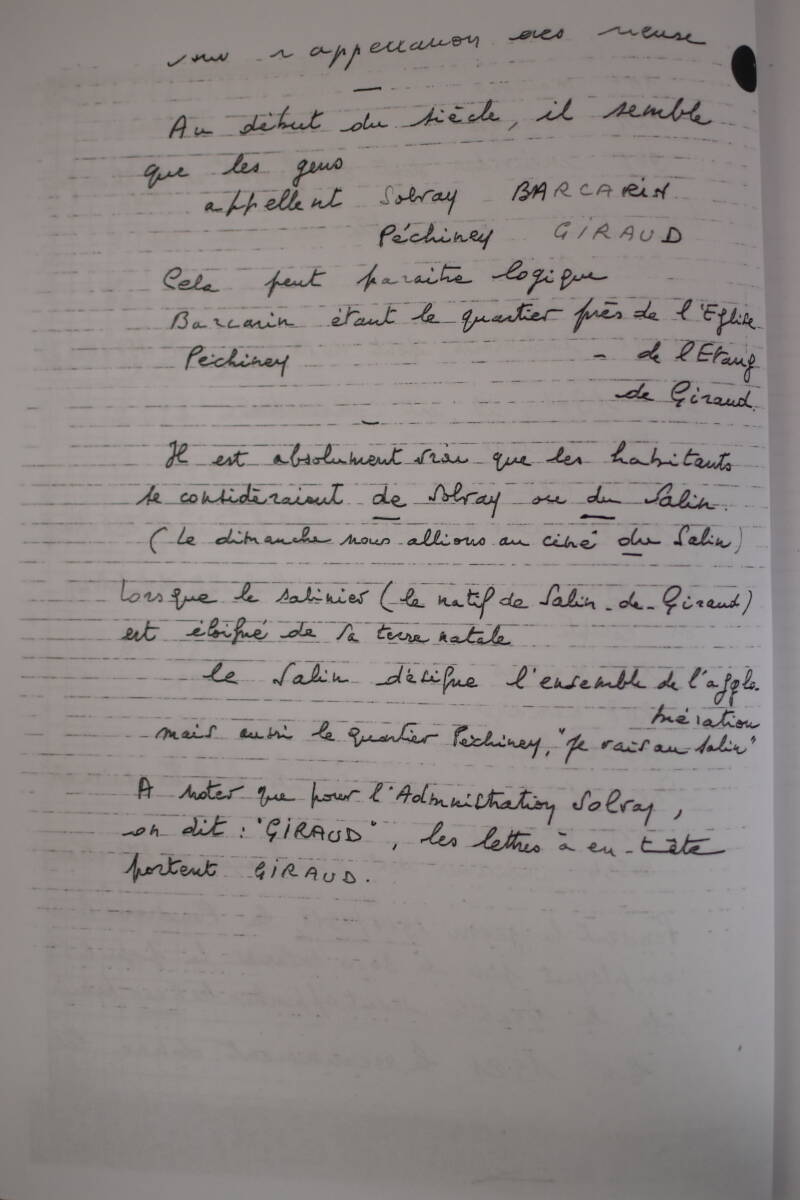 sur l'appellation des lieux
—
Au début du siècle, il semble
que les gens
appellent Solvay BARCARIN
Péchiney GIRAUD
Cela peut paraître logique
Barcarin étant le quartier près de l'Eglise
Péchiney – de l'Etang
de Giraud.
—
Il est absolument vrai que les habitants
se considéraient de Solvay ou du Salin.
(Le dimanche nous allions au ciné du Salin)
Lorsque le salinier (le natif de Salin-de-Giraud)
est éloigné de sa terre natale
le Salin désigne l'ensemble de l'agglo-
mération
mais aussi le quartier Péchiney, "Je vais au Salin"
A noter que pour l'Administration Solvay,
on dit : "GIRAUD", les lettres à en-tête
portent GIRAUD.